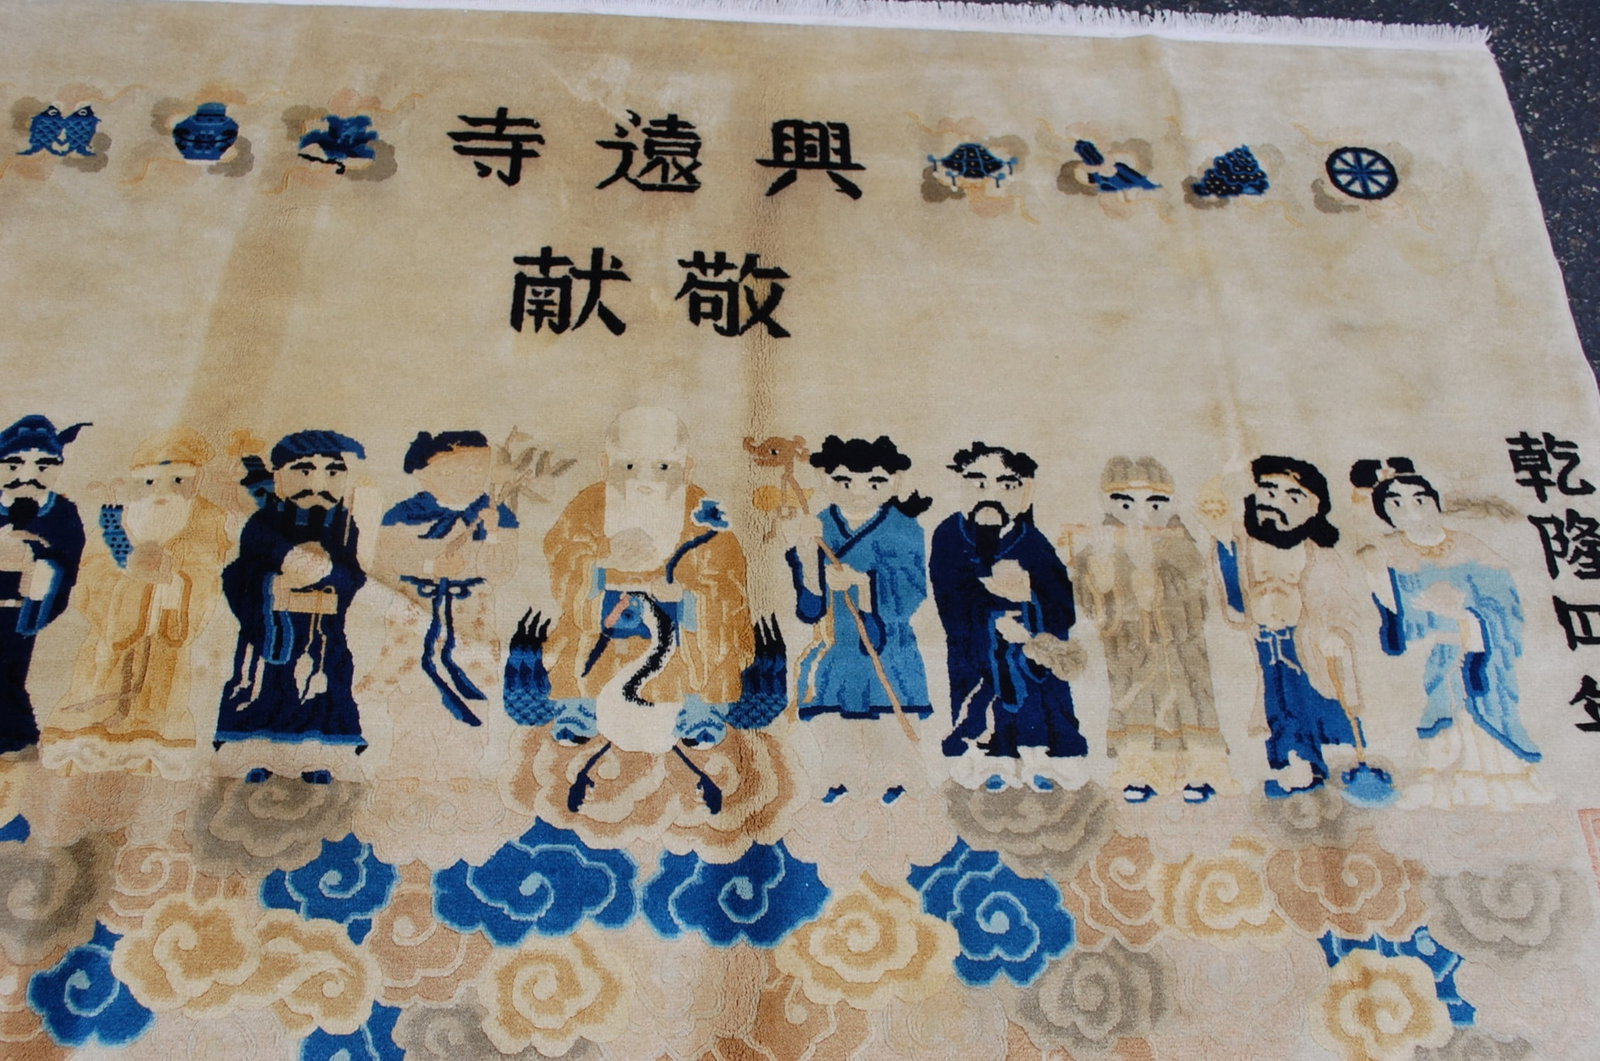 興遠寺
敬献
乾隆四年